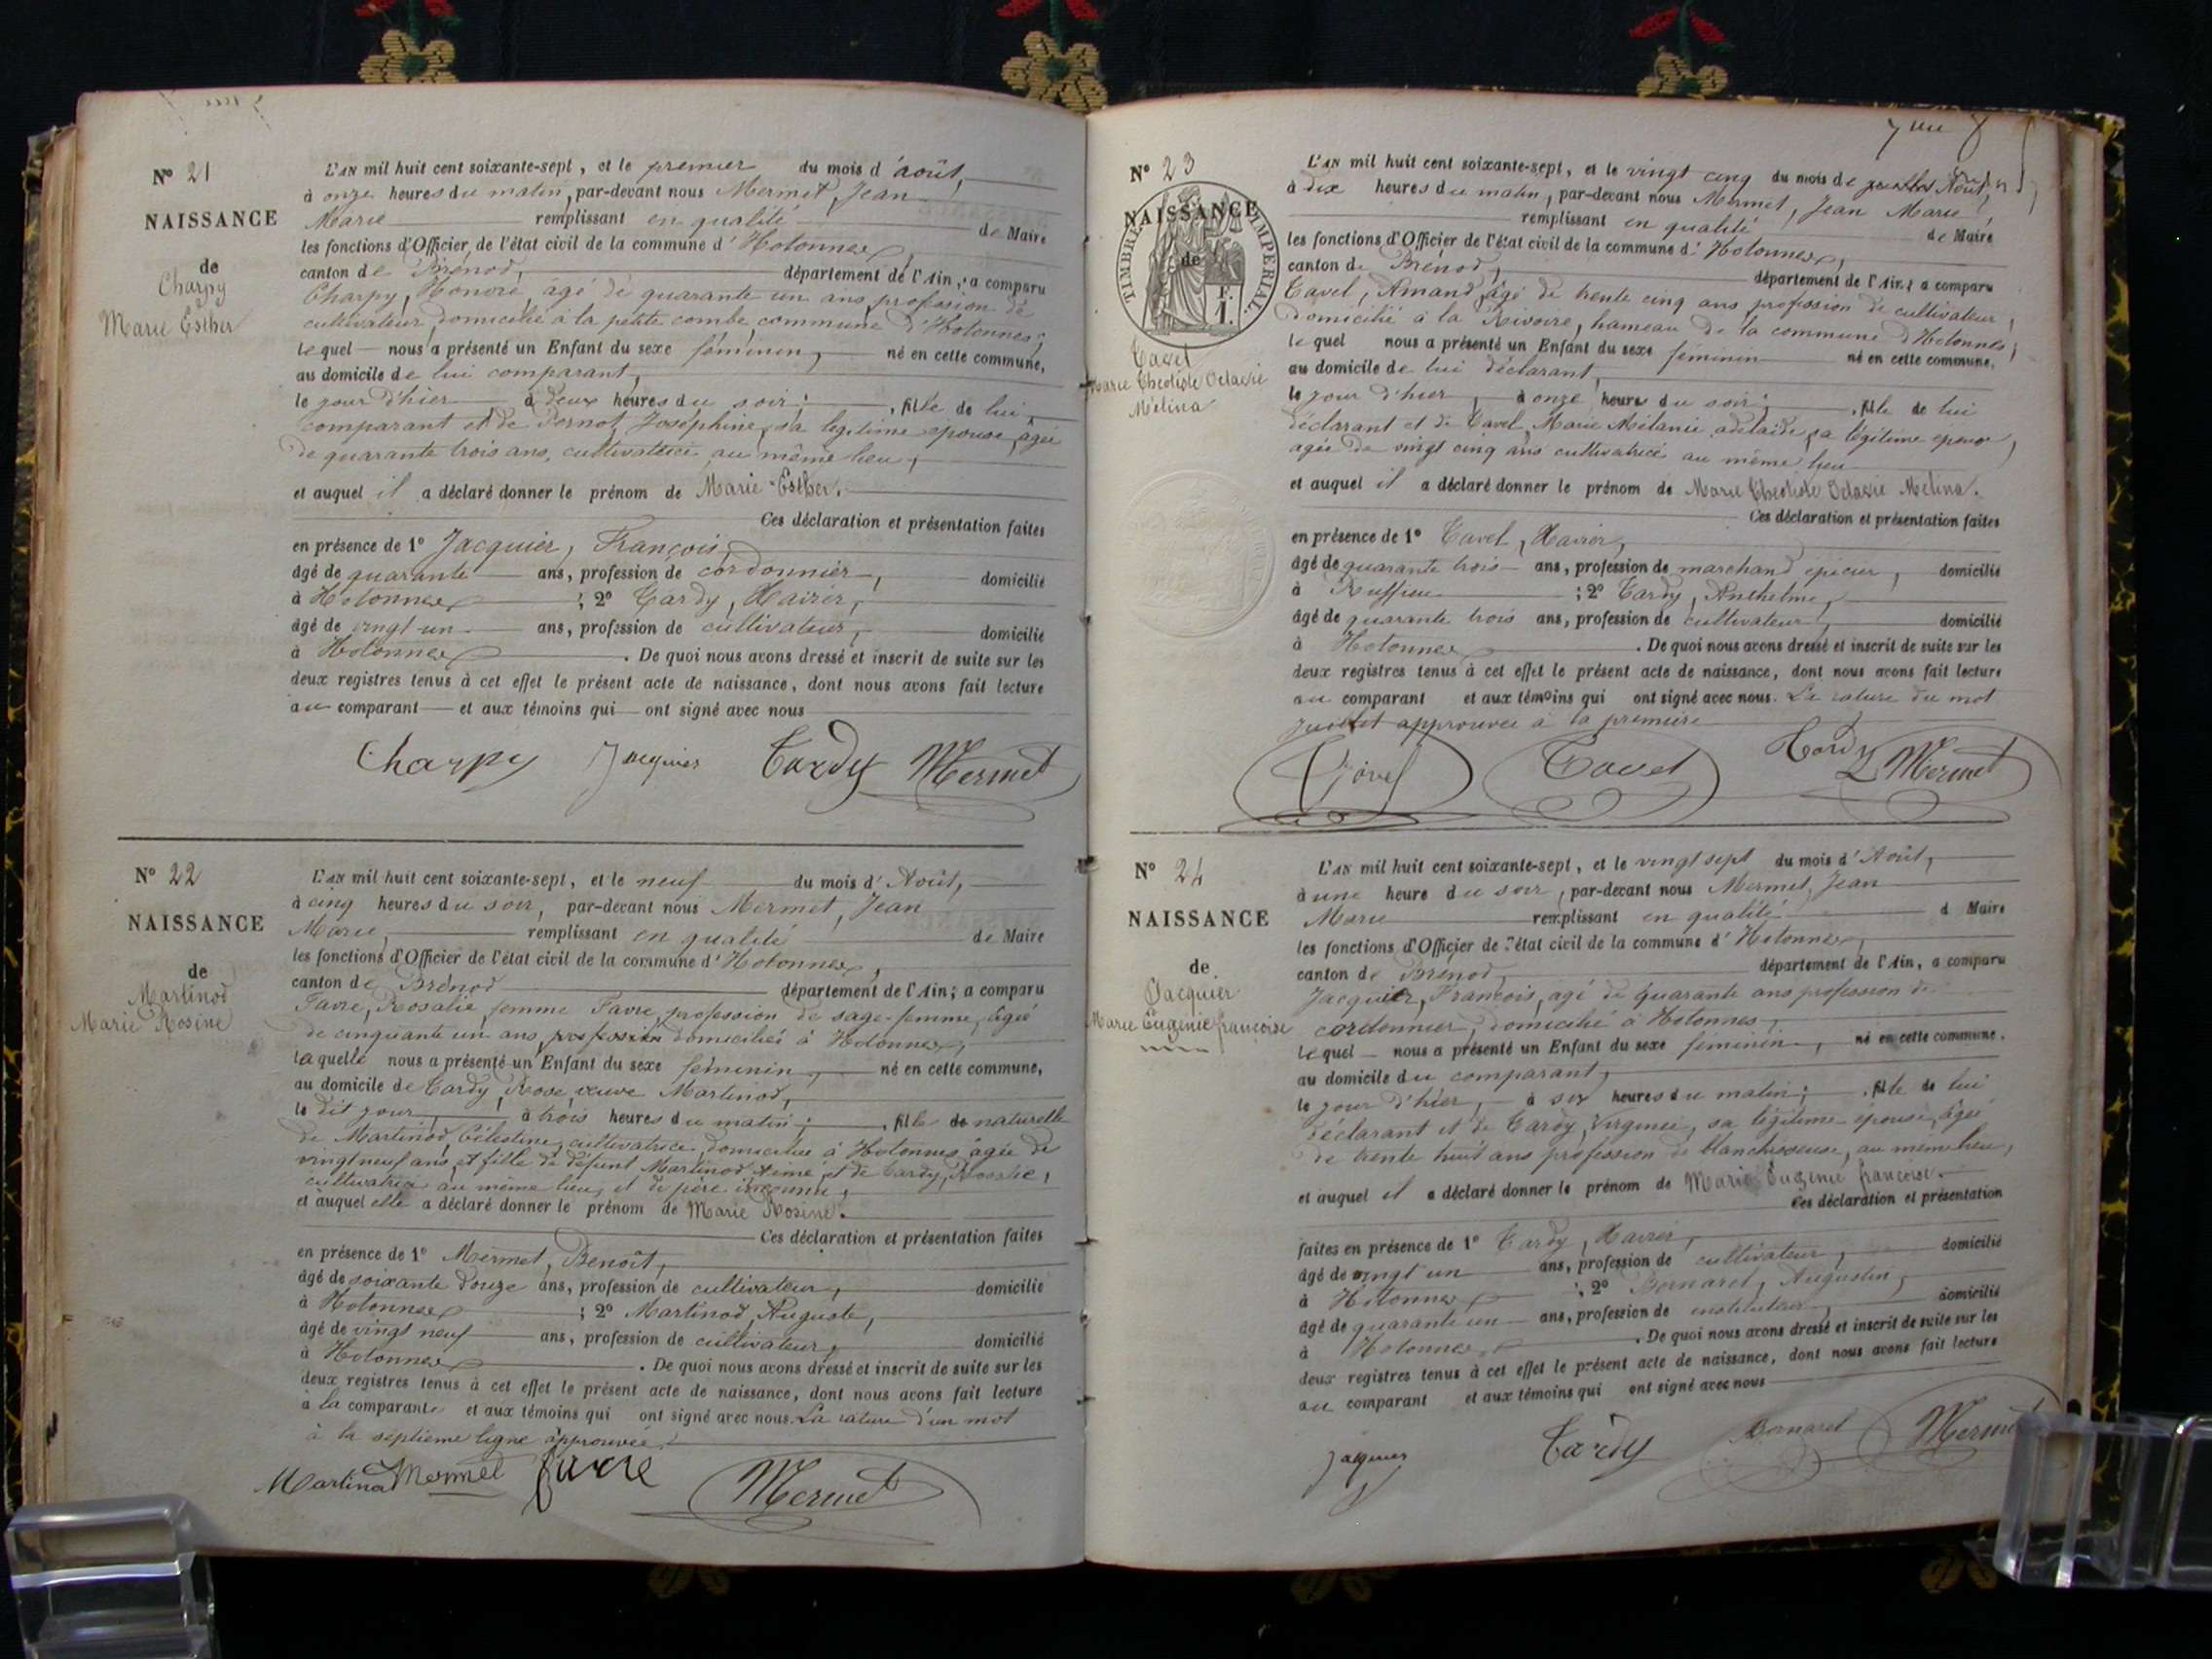 N° 21
NAISSANCE
de
Charpy
Marie Esther
L'AN mil huit cent soixante-sept, et le premier du mois d'août,
à onze heures du matin, par-devant nous Mermet, Jean
Marie remplissant en qualité de Maire
les fonctions d'Officier de l'état civil de la commune d'Hotonnes,
canton de Brénod, département de l'Ain; a comparu
Charpy, Honoré, âgé de quarante un ans profession de
cultivateur domicilié à la petite combe commune d'Hotonnes;
lequel nous a présenté un Enfant du sexe féminin, né en cette commune,
au domicile de lui comparant,
le jour d'hier à deux heures du soir; , fille de lui
comparant et de Pernot, Joséphine, sa légitime épouse, âgée
de quarante trois ans, cultivatrice au même lieu,
et auquel il a déclaré donner le prénom de Marie Esther.
Ces déclaration et présentation faites
en présence de 1° Jacquier, François,
âgé de quarante ans, profession de cordonnier, domicilié
à Hotonnes ; 2° Tardy, Xavier,
âgé de vingt-un ans, profession de cultivateur, domicilié
à Hotonnes . De quoi nous avons dressé et inscrit de suite sur les
deux registres tenus à cet effet le présent acte de naissance, dont nous avons fait lecture
au comparant et aux témoins qui ont signé avec nous
Charpy Jacquier Tardy Mermet
N° 22
NAISSANCE
de
Martinod
Marie Rosine
L'AN mil huit cent soixante-sept, et le neuf du mois d'Août,
à cinq heures du soir, par-devant nous Mermet, Jean
Marie, remplissant en qualité de Maire
les fonctions d'Officier de l'état civil de la commune d'Hotonnes,
canton de Brénod département de l'Ain; a comparu
Favre, Rosalie, femme Favre, profession de sage-femme, âgée
de cinquante un ans, profession domiciliée à Hotonnes,
laquelle nous a présenté un Enfant du sexe féminin, né en cette commune,
au domicile de Tardy, Rose, veuve Martinod,
le dit jour, à trois heures du matin; , fille de naturelle
de Martinod, Célestine, cultivatrice domiciliée à Hotonnes âgée de
vingt neuf ans et fille de défunt Martinod et de Tardy,
cultivatrice au même lieu, et de père inconnu,
et auquel elle a déclaré donner le prénom de Marie Rosine.
Ces déclaration et présentation faites
en présence de 1° Mermet, Benoît,
âgé de soixante douze ans, profession de cultivateur, domicilié
à Hotonnes ; 2° Martinod, Auguste,
âgé de vingt neuf ans, profession de cultivateur, domicilié
à Hotonnes . De quoi nous avons dressé et inscrit de suite sur les
deux registres tenus à cet effet le présent acte de naissance, dont nous avons fait lecture
à la comparante et aux témoins qui ont signé avec nous. La rature d'un mot
à la septième ligne approuvée.
Martinod Mermet Favre Mermet
N° 23
NAISSANCE
de
TIMBRE IMPERIAL
1 F.
Tavel
Marie Théotiste Octavie
Mélina
L'AN mil huit cent soixante-sept, et le vingt cinq du mois de juillet Août,
à dix heures du matin, par-devant nous Mermet, Jean Marie,
remplissant en qualité de Maire
les fonctions d'Officier de l'état civil de la commune d'Hotonnes,
canton de Brénod, département de l'Ain; a comparu
Tavel, Amand, âgé de trente cinq ans profession de cultivateur,
domicilié à la Rivoire, hameau de la commune d'Hotonnes;
lequel nous a présenté un Enfant du sexe féminin né en cette commune,
au domicile de lui déclarant,
le jour d'hier, à onze heures du soir; , fille de lui
déclarant et de Tavel, Marie Mélanie adélaïde, sa légitime épouse,
âgée de vingt cinq ans cultivatrice au même lieu
et auquel il a déclaré donner le prénom de Marie Théotiste Octavie Mélina.
Ces déclaration et présentation faites
en présence de 1° Tavel, Xavier,
âgé de quarante trois ans, profession de marchand épicier, domicilié
à Ruffieu ; 2° Tardy, Anthelme,
âgé de quarante trois ans, profession de cultivateur, domicilié
à Hotonnes . De quoi nous avons dressé et inscrit de suite sur les
deux registres tenus à cet effet le présent acte de naissance, dont nous avons fait lecture
au comparant et aux témoins qui ont signé avec nous. La rature du mot
Juillet approuvée à la première
Tavel Tavel Tardy Mermet
N° 24
NAISSANCE
de
Jacquier
Marie Eugénie françoise
L'AN mil huit cent soixante-sept, et le vingt sept du mois d'Août,
à une heure du soir, par-devant nous Mermet, Jean
Marie remplissant en qualité d Maire
les fonctions d'Officier de l'état civil de la commune d'Hotonnes,
canton de Brénod, département de l'Ain, a comparu
Jacquier, François, âgé de quarante ans profession de
cordonnier, domicilié à Hotonnes,
lequel nous a présenté un Enfant du sexe féminin, né en cette commune,
au domicile du comparant,
le jour d'hier, à six heures du matin; , fille de lui
déclarant et de Tardy, Virginie, sa légitime épouse, âgée
de trente huit ans profession de blanchisseuse, au même lieu,
et auquel il a déclaré donner le prénom de Marie Eugénie françoise.
Ces déclaration et présentation
faites en présence de 1° Tardy, Xavier,
âgé de vingt un ans, profession de cultivateur, domicilié
à Hotonnes ; 2° Bernard, Augustin,
âgé de quarante un ans, profession de instituteur, domicilié
à Hotonnes . De quoi nous avons dressé et inscrit de suite sur les
deux registres tenus à cet effet le présent acte de naissance, dont nous avons fait lecture
au comparant et aux témoins qui ont signé avec nous
Jaquier Tardy Bernard Mermet